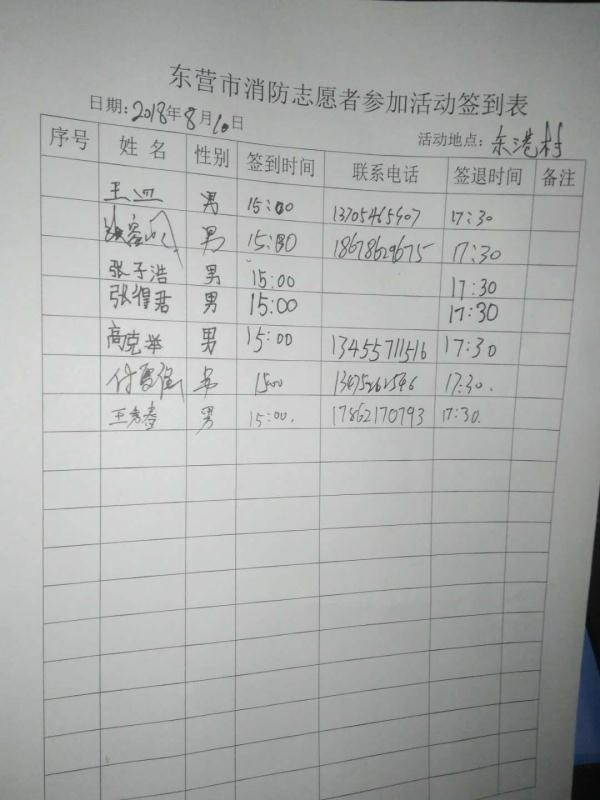 东营市消防志愿者参加活动签到表
日期：2018年8月10日 活动地点：东港村
序号 姓名 性别 签到时间 联系电话 签退时间 备注
王 男 15:00 13705465907 17:30
男 15:00 18678629675 17:30
张子浩 男 15:00 17:30
张得君 男 15:00 17:30
高克举 男 15:00 13455711516 17:30
付 男 1500 17:30.
王秀春 男 15:00. 17862170793 17:30.